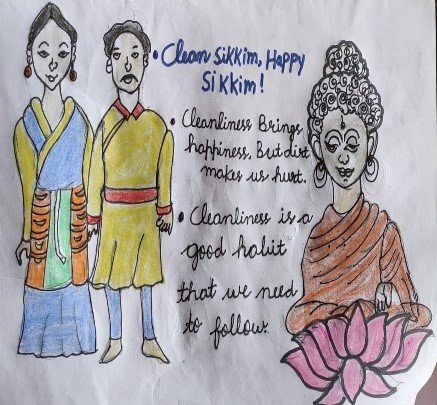 • Clean Sikkim, Happy
Sikkim!
• Cleanliness Brings
happiness, But dist
makes us hust.
• Cleanliness is a
good habit
that we need
to follow.